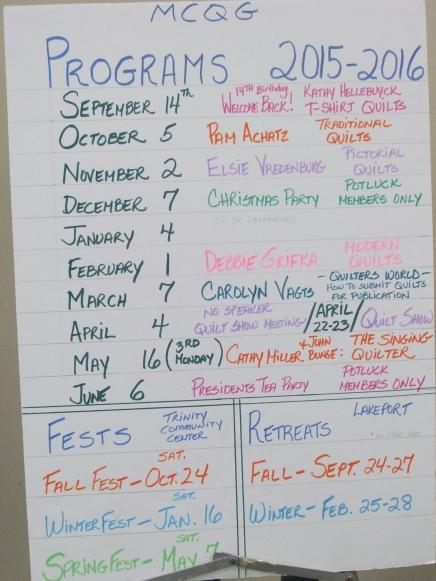 MCQG
PROGRAMS 2015-2016
SEPTEMBER 14TH 14TH Birthday WELCOME BACK! KATHY HELLEBUYCK T-SHIRT QUILTS
OCTOBER 5 PAM ACHATZ TRADITIONAL QUILTS
NOVEMBER 2 ELSIE VREDENBURG PICTORIAL QUILTS
DECEMBER 7 CHRISTMAS PARTY POTLUCK MEMBERS ONLY
JANUARY 4 TO BE DETERMINED
FEBRUARY 1 DEBBIE GRIFKA MODERN QUILTS
MARCH 7 CAROLYN VAGTS -QUILTERS WORLD- HOW TO SUBMIT QUILTS FOR PUBLICATION
APRIL 4 NO SPEAKER QUILT SHOW MEETING / APRIL 22-23 / QUILT SHOW
MAY 16 (3RD MONDAY) CATHY MILLER & JOHN BUNGE: THE SINGING QUILTER
JUNE 6 PRESIDENTS TEA PARTY POTLUCK MEMBERS ONLY
FESTS TRINITY COMMUNITY CENTER
SAT.
FALL FEST- OCT. 24
SAT.
WINTERFEST- JAN. 16
SAT.
SPRINGFEST- MAY 7
RETREATS LAKEPORT
FALL- SEPT. 24-27
WINTER- FEB. 25-28